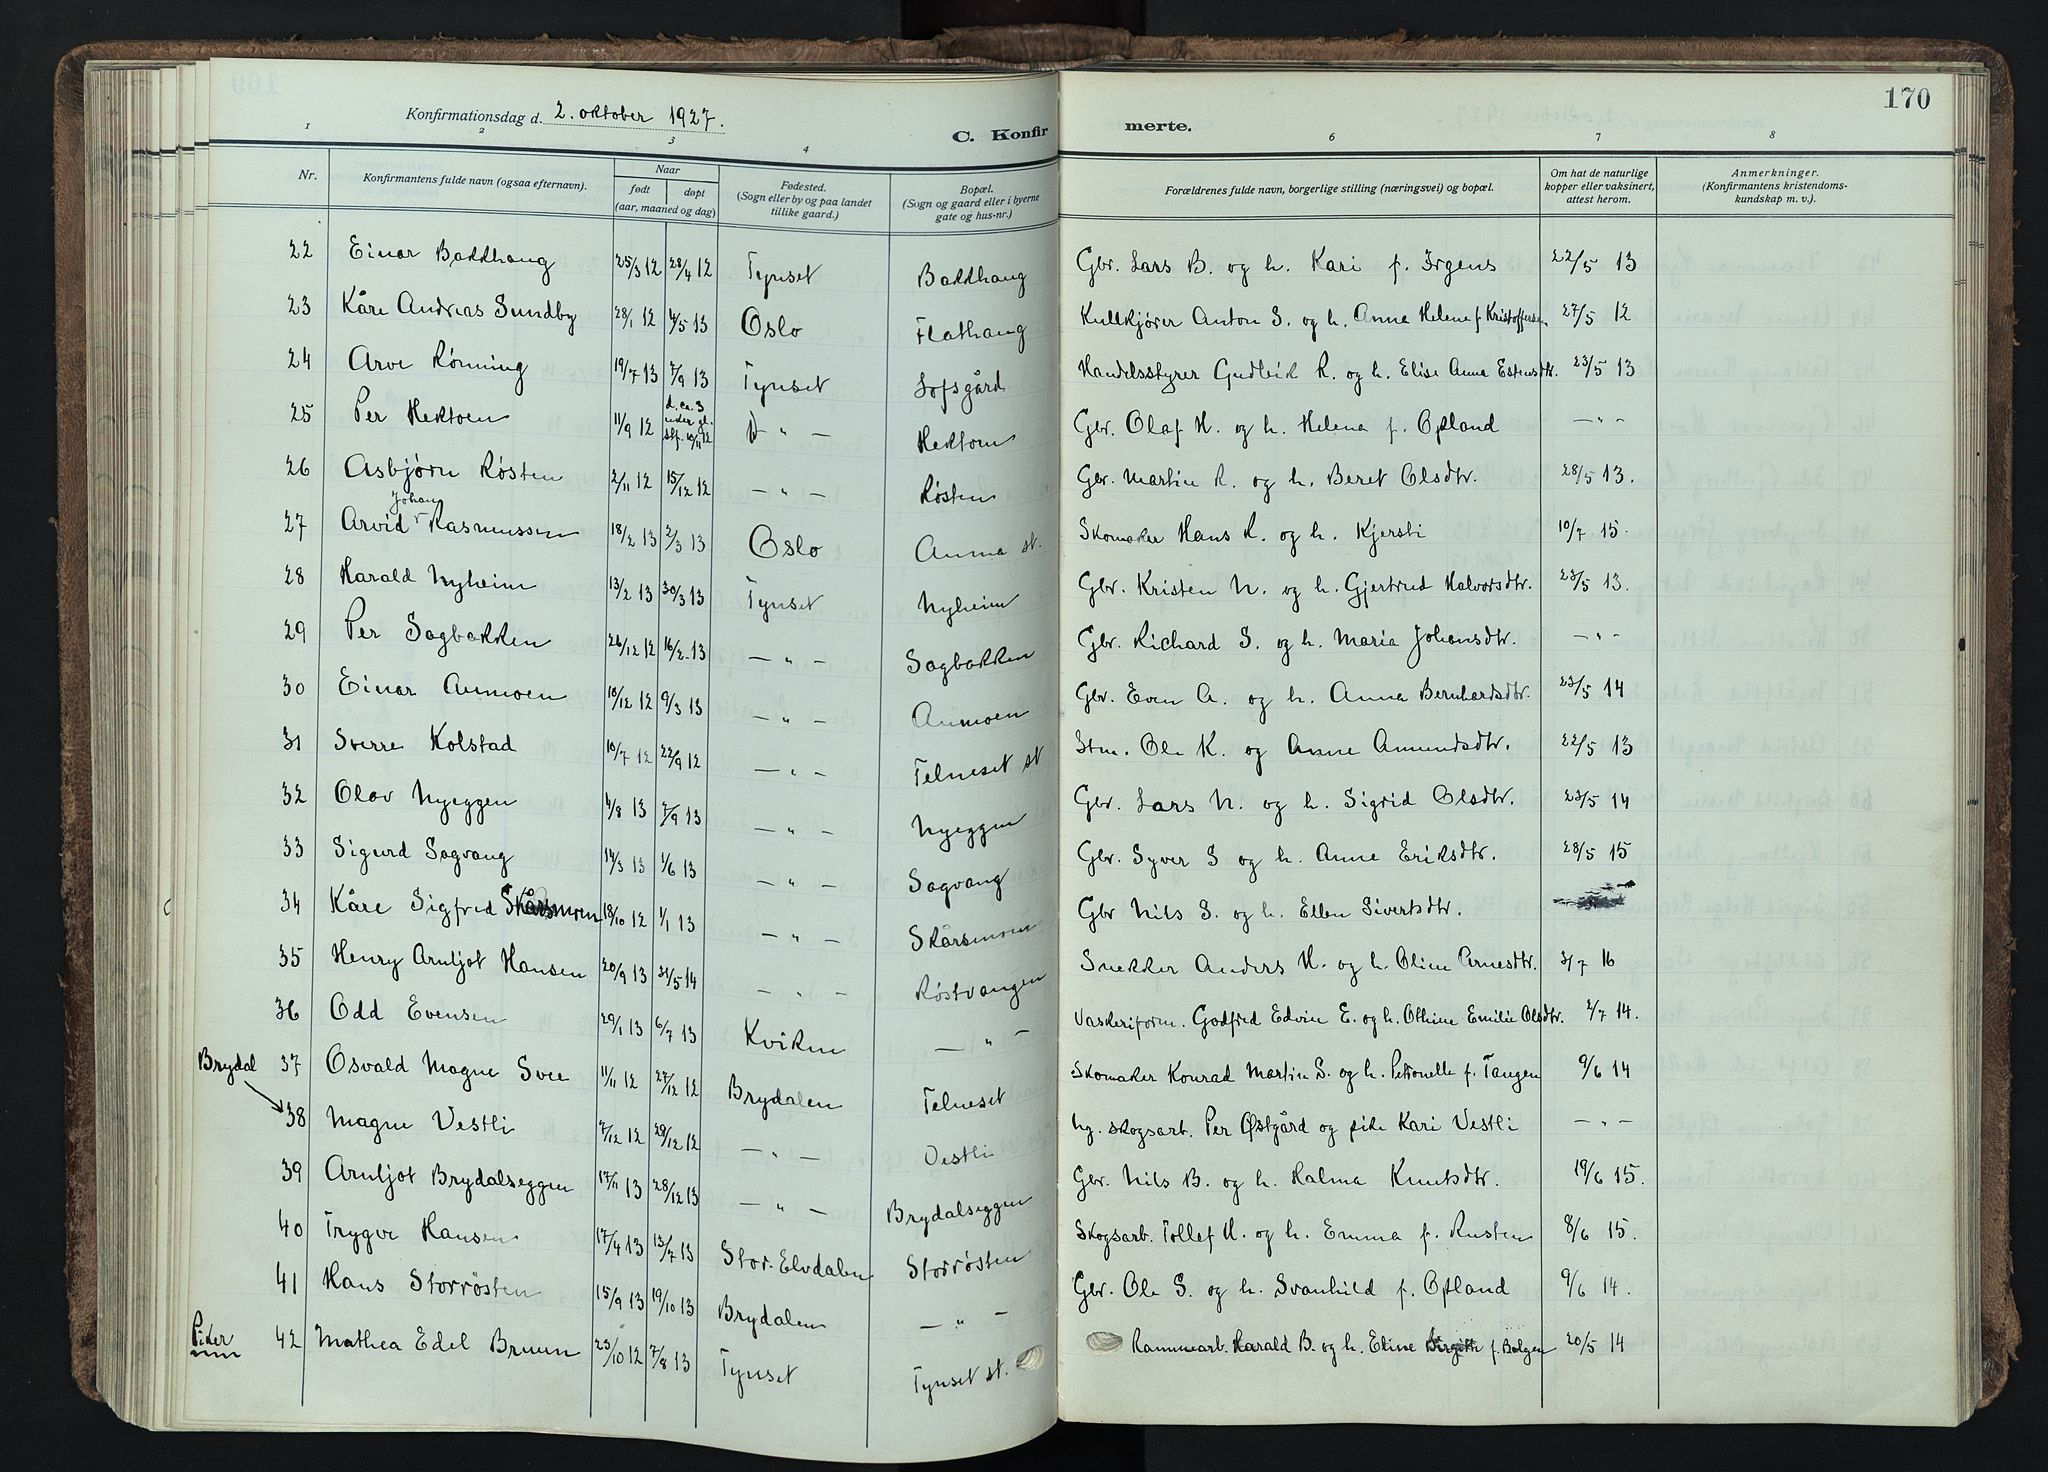 170
Konfirmationsdag d. 2. oktober 1927.
C. Konfirmerte.
1 2 3 4 6 7 8
Nr. Konfirmantens fulde navn (ogsaa efternavn). Naar født døpt (aar, maaned og dag) Fødested. (Sogn eller by og paa landet tillike gaard.) Bopæl. (Sogn og gaard eller i byerne gate og hus-nr.) Forældrenes fulde navn, borgerlige stilling (næringsvei) og bopæl. Om hat de naturlige kopper eller vaksinert, attest herom. Anmerkninger. (Konfirmantens kristendomskundskap m. v.).
22 Einar Bakkhaug 25/3 12 28/4 12 Tynset Bakkhaug Gbr. Lars B. og h. Kari f. Irgens 22/5 13
23 Kåre Andreas Sundby 28/1 12 4/5 13 Oslo Flathaug Kullkjører Anton S. og h. Anna Helene f. Kristoffersen 27/5 12
24 Arve Rønning 19/7 13 7/9 13 Tynset Lofsgård Handelsstyrer Gudleik R. og h. Elise Anna Estensdtr. 23/5 13
25 Per Hektoen 11/9 12 d. ca. 3 uker gl. stf. 10/11 12 — " — Hektoen Gbr. Olaf H. og h. Helena f. Opland — " —
26 Asbjørn Røsten 2/11 12 15/12 12 — " — Røsten Gbr. Martin R. og h. Beret Olsdtr. 28/5 13.
27 Arvid Johan Rasmussen 18/2 13 2/3 13 Oslo Auma st. Skomaker Hans R. og h. Kjersti 10/7 15.
28 Harald Nyheim 13/2 13 30/3 13 Tynset Nyheim Gbr. Kristen N. og h. Gjertrud Halvorsdtr. 23/5 13.
29 Per Sagbakken 26/12 12 16/2 13 — " — Sagbakken Gbr. Richard S. og h. Maria Johansdtr. — " —
30 Einar Aumoen 10/12 12 9/3 13 — " — Aumoen Gbr. Even A. og h. Anna Bernhardsdtr. 23/5 14
31 Sverre Kolstad 10/7 12 22/9 12 — " — Telneset st Stm. Ole K. og Anne Amundsdtr. 22/5 13
32 Olav Nyeggen 4/8 13 7/9 13 — " — Nyeggen Gbr. Lars N. og h. Sigrid Olsdtr. 23/5 14
33 Sigurd Sagvang 14/3 13 1/6 13 — " — Sagvang Gbr. Syver S og h. Anne Eriksdtr. 28/5 15
34 Kåre Sigfred Skårsmoen 18/10 12 1/1 13 — " — Skårsmoen Gbr Nils S. og h. Ellen Sivertsdtr.
35 Henry Arnljot Hansen 20/9 13 31/5 14 — " — Røstvangen Snekker Anders H. og h. Oline Arnesdtr. 3/7 16
36 Odd Evensen 29/1 13 6/7 13 Kvikne — " — Vaskeriform. Godfred Edvin E. og h. Othine Emilie Olsdtr. 2/7 14.
Brydal
37 Osvald Magne Svee 11/11 12 27/12 12 Brydalen Telneset Skomaker Konrad Martin S. og h. Petronelle f. Tangen 9/6 14
38 Magne Vestli 7/12 12 29/12 12 — " — Vestli Ug. skogsarb. Per Østgård og pike Kari Vestli — " —
39 Arnljot Brydalseggen 17/11 13 28/12 13 — " — Brydalseggen Gbr. Nils B. og h. Kalma Knutsdtr. 19/6 15.
40 Trygve Hansen 17/4 13 13/7 13 Stor-Elvdalen Storrøsten Skogsarb. Tollef H. og h. Emma f. Rusten 8/6 15.
41 Hans Storrøsten 15/9 13 19/10 13 Brydalen — " — Gbr. Ole S. og h. Svanhild f. Opland 9/6 14.
Piker
42 Mathea Edel Bruun 23/10 12 7/8 13 Tynset Tynset st. Rammearb. Harald B. og h. Eline Birgith f. Bolgen 20/5 14